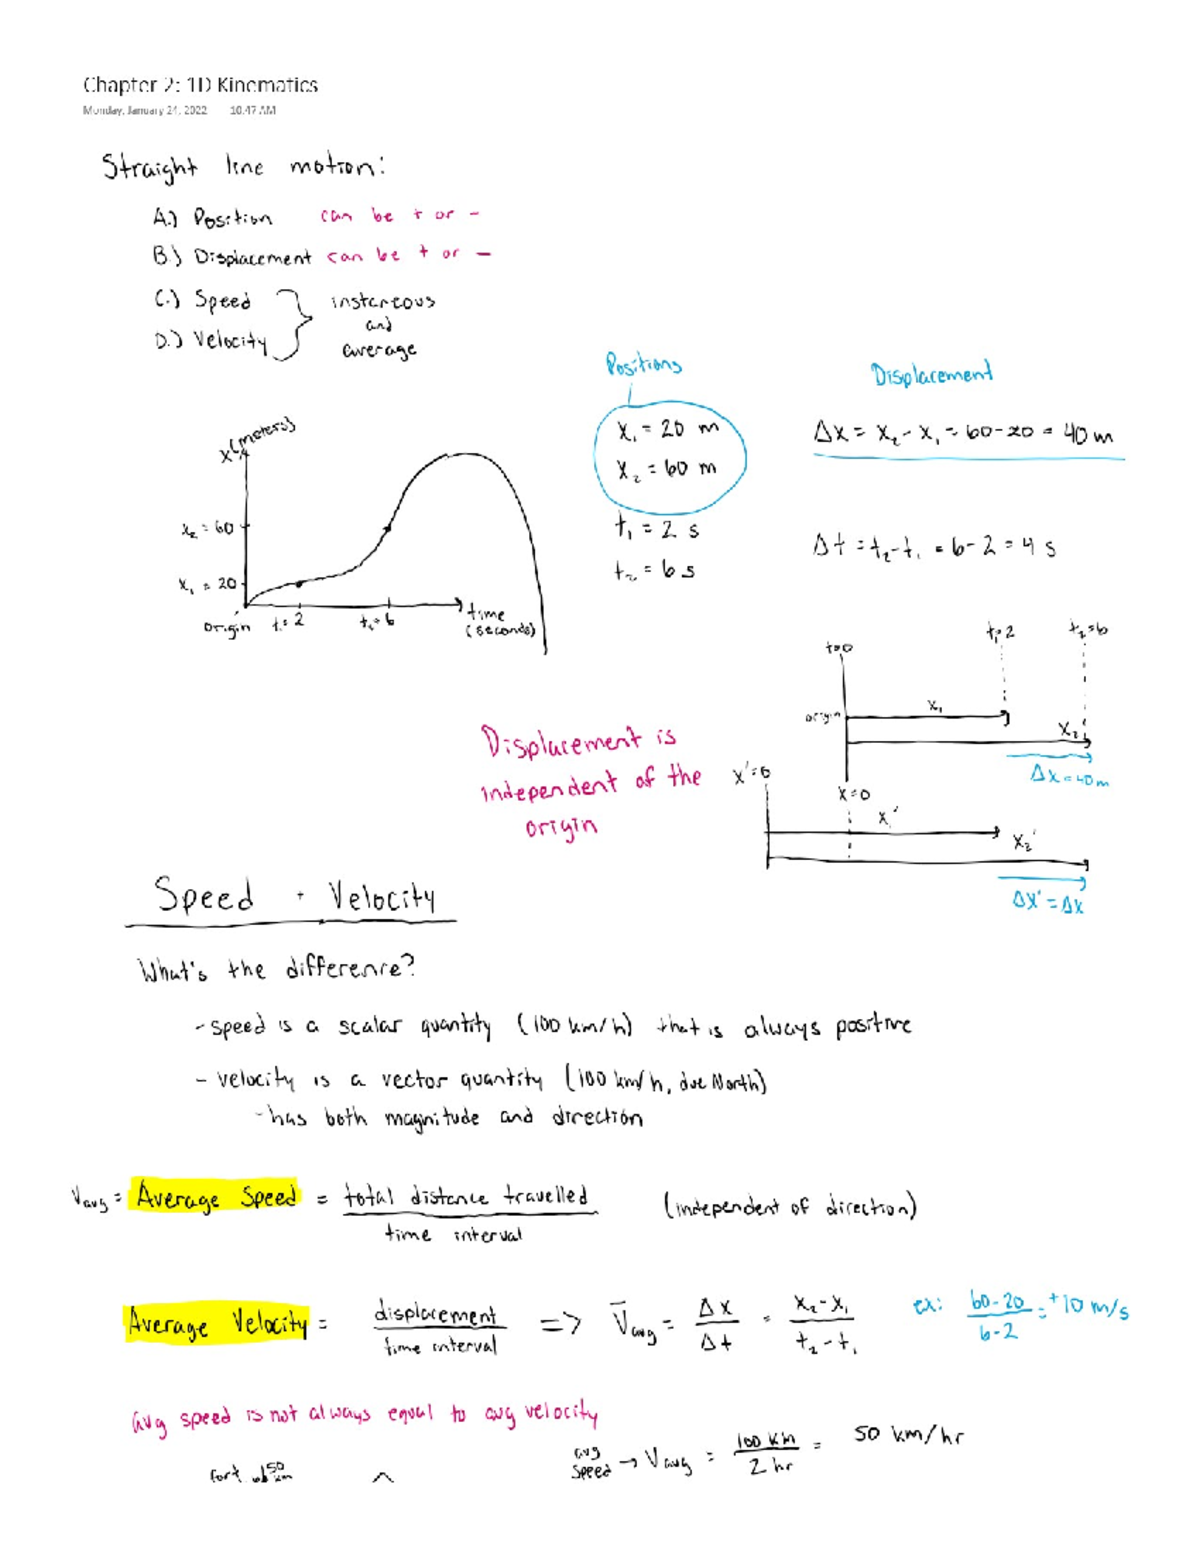 Chapter 2: 1D Kinematics
Monday, January 24, 2022 10:47 AM
Straight line motion:
A.) Position can be + or -
B.) Displacement can be + or -
C.) Speed
D.) Velocity
instareous
and
average
Positions
x₁ = 20 m
x₂ = 60 m
t₁ = 2 s
t₂ = 6 s
Displacement
Δx = x₂ - x₁ = 60-20 = 40 m
Δt = t₂-t₁ = 6-2 = 4 s
x (meters)
x₂ = 60
x₁ = 20
origin t₁= 2 t₂= 6 time
(seconds)
t=0 t₁=2 t₂=6
origin x₁
x₂
Δx = 40m
x=0
Displacement is
independent of the
origin
x'=0
x₁'
x₂'
Δx' = Δx
Speed + Velocity
What's the difference?
- speed is a scalar quantity (100 km/h) that is always positive
- velocity is a vector quantity (100 km/h, due North)
- has both magnitude and direction
Vavg = Average Speed = total distance travelled / time interval (independent of direction)
Average Velocity = displacement / time interval => V̄avg = Δx / Δt = x₂-x₁ / t₂-t₁ ex: 60-20 / 6-2 = +10 m/s
avg speed is not always equal to avg velocity
avg speed → Vavg = 100 km / 2 hr = 50 km/hr
50
km